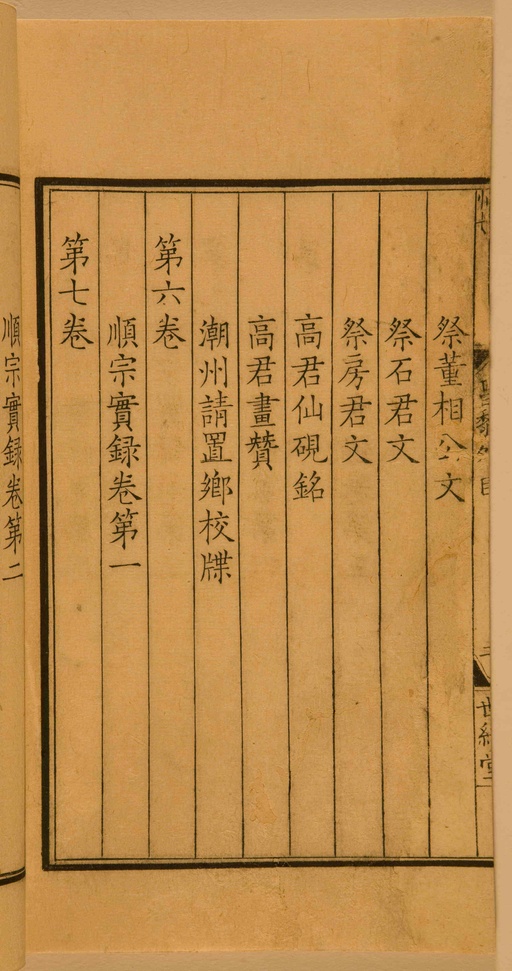 祭董相公文
祭石君文
祭房君文
高君仙硯銘
高君畫贊
潮州請置鄉校牒
第六卷
順宗實録卷第一
第七卷
順宗實録卷第二
世綵堂